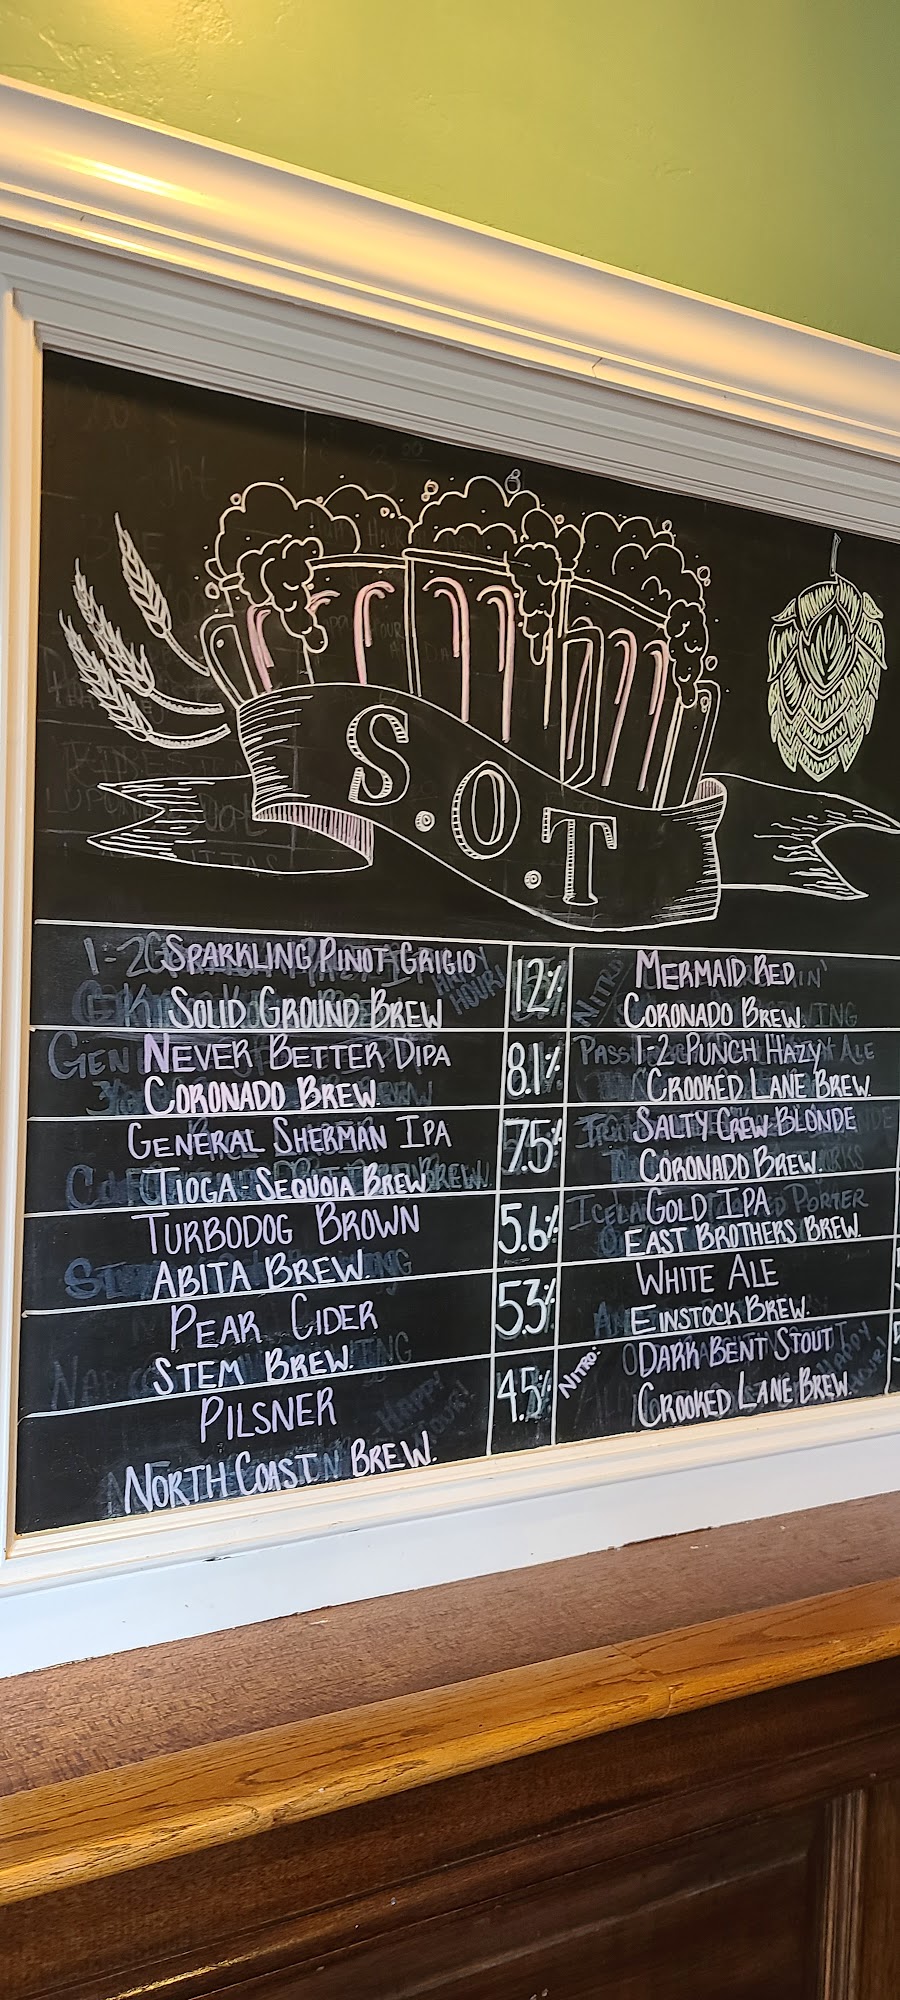 S.O.T
SPARKLING PINOT GRIGIO
SOLID GROUND BREW
12%
NEVER BETTER DIPA
CORONADO BREW.
8.1%
GENERAL SHERMAN IPA
TIOGA-SEQUOIA BREW
7.5%
TURBODOG BROWN
ABITA BREW.
5.6%
PEAR CIDER
STEM BREW.
5.3%
PILSNER
NORTH COAST BREW.
4.5%
MERMAID RED
CORONADO BREW.
1-2 PUNCH HAZY
CROOKED LANE BREW.
SALTY CREW BLONDE
CORONADO BREW.
GOLD IPA
EAST BROTHERS BREW.
WHITE ALE
EINSTOCK BREW.
NITRO:
DARK BENT STOUT
CROOKED LANE BREW.